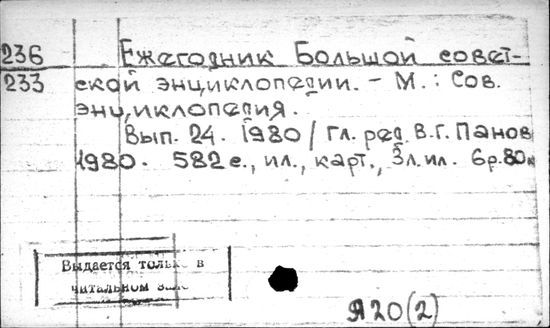 236 Ежегодник Большой совет-
233 ской энциклопедии. – М.: Сов.
энциклопедия.
Вып. 24. 1980 / гл. ред. В.Г. Панов
1980. 582 с., ил., карт., 3л.ил. 6р.80к
Выдается только в
читальном зале
Я20(2)